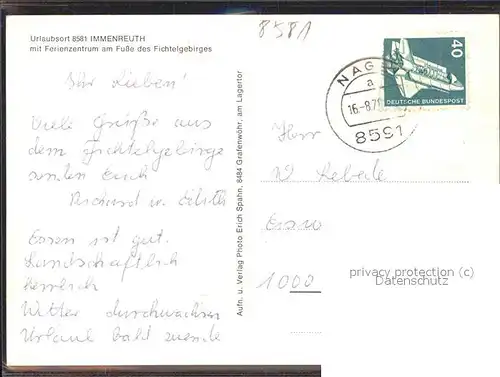 8581
Urlaubsort 8581 IMMENREUTH
mit Ferienzentrum am Fuße des Fichtelgebirges
Ihr Lieben!
Viele Grüße aus
dem Fichtelgebirge
senden Euch
Richard u. Edith
Essen ist gut.
Landschaftlich
herrlich
Wetter durchwachsen
Urlaub bald zuende
Aufn. u. Verlag Photo Erich Spahn, 8484 Grafenwöhr, am Lagertor
NAGEL
a
16.-8.78
8591
40
DEUTSCHE BUNDESPOST
Herr
W
1000
privacy protection (c)
Datenschutz